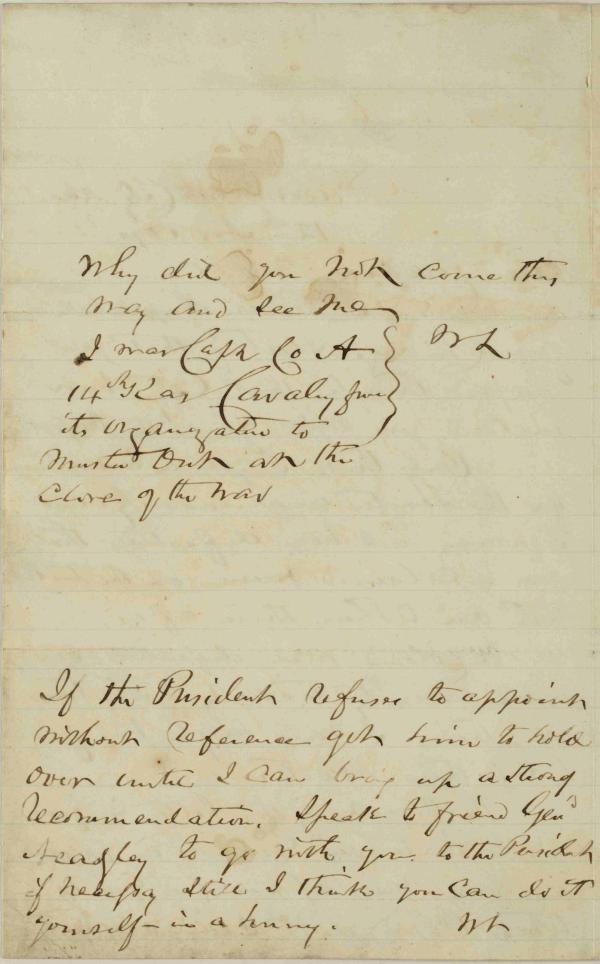 Why did you not come this
way and see me
I was Capt Co A
14th Kas Cavalry from
its organization to
Muster Out at the
Close of the War
W L
If the President refuses to appoint
without reference get him to hold
over until I can bring up a strong
recommendation. Speak to friend Genl
Neagley to go with you to the President
if necessy still I think you can do it
yourself in a hurry.